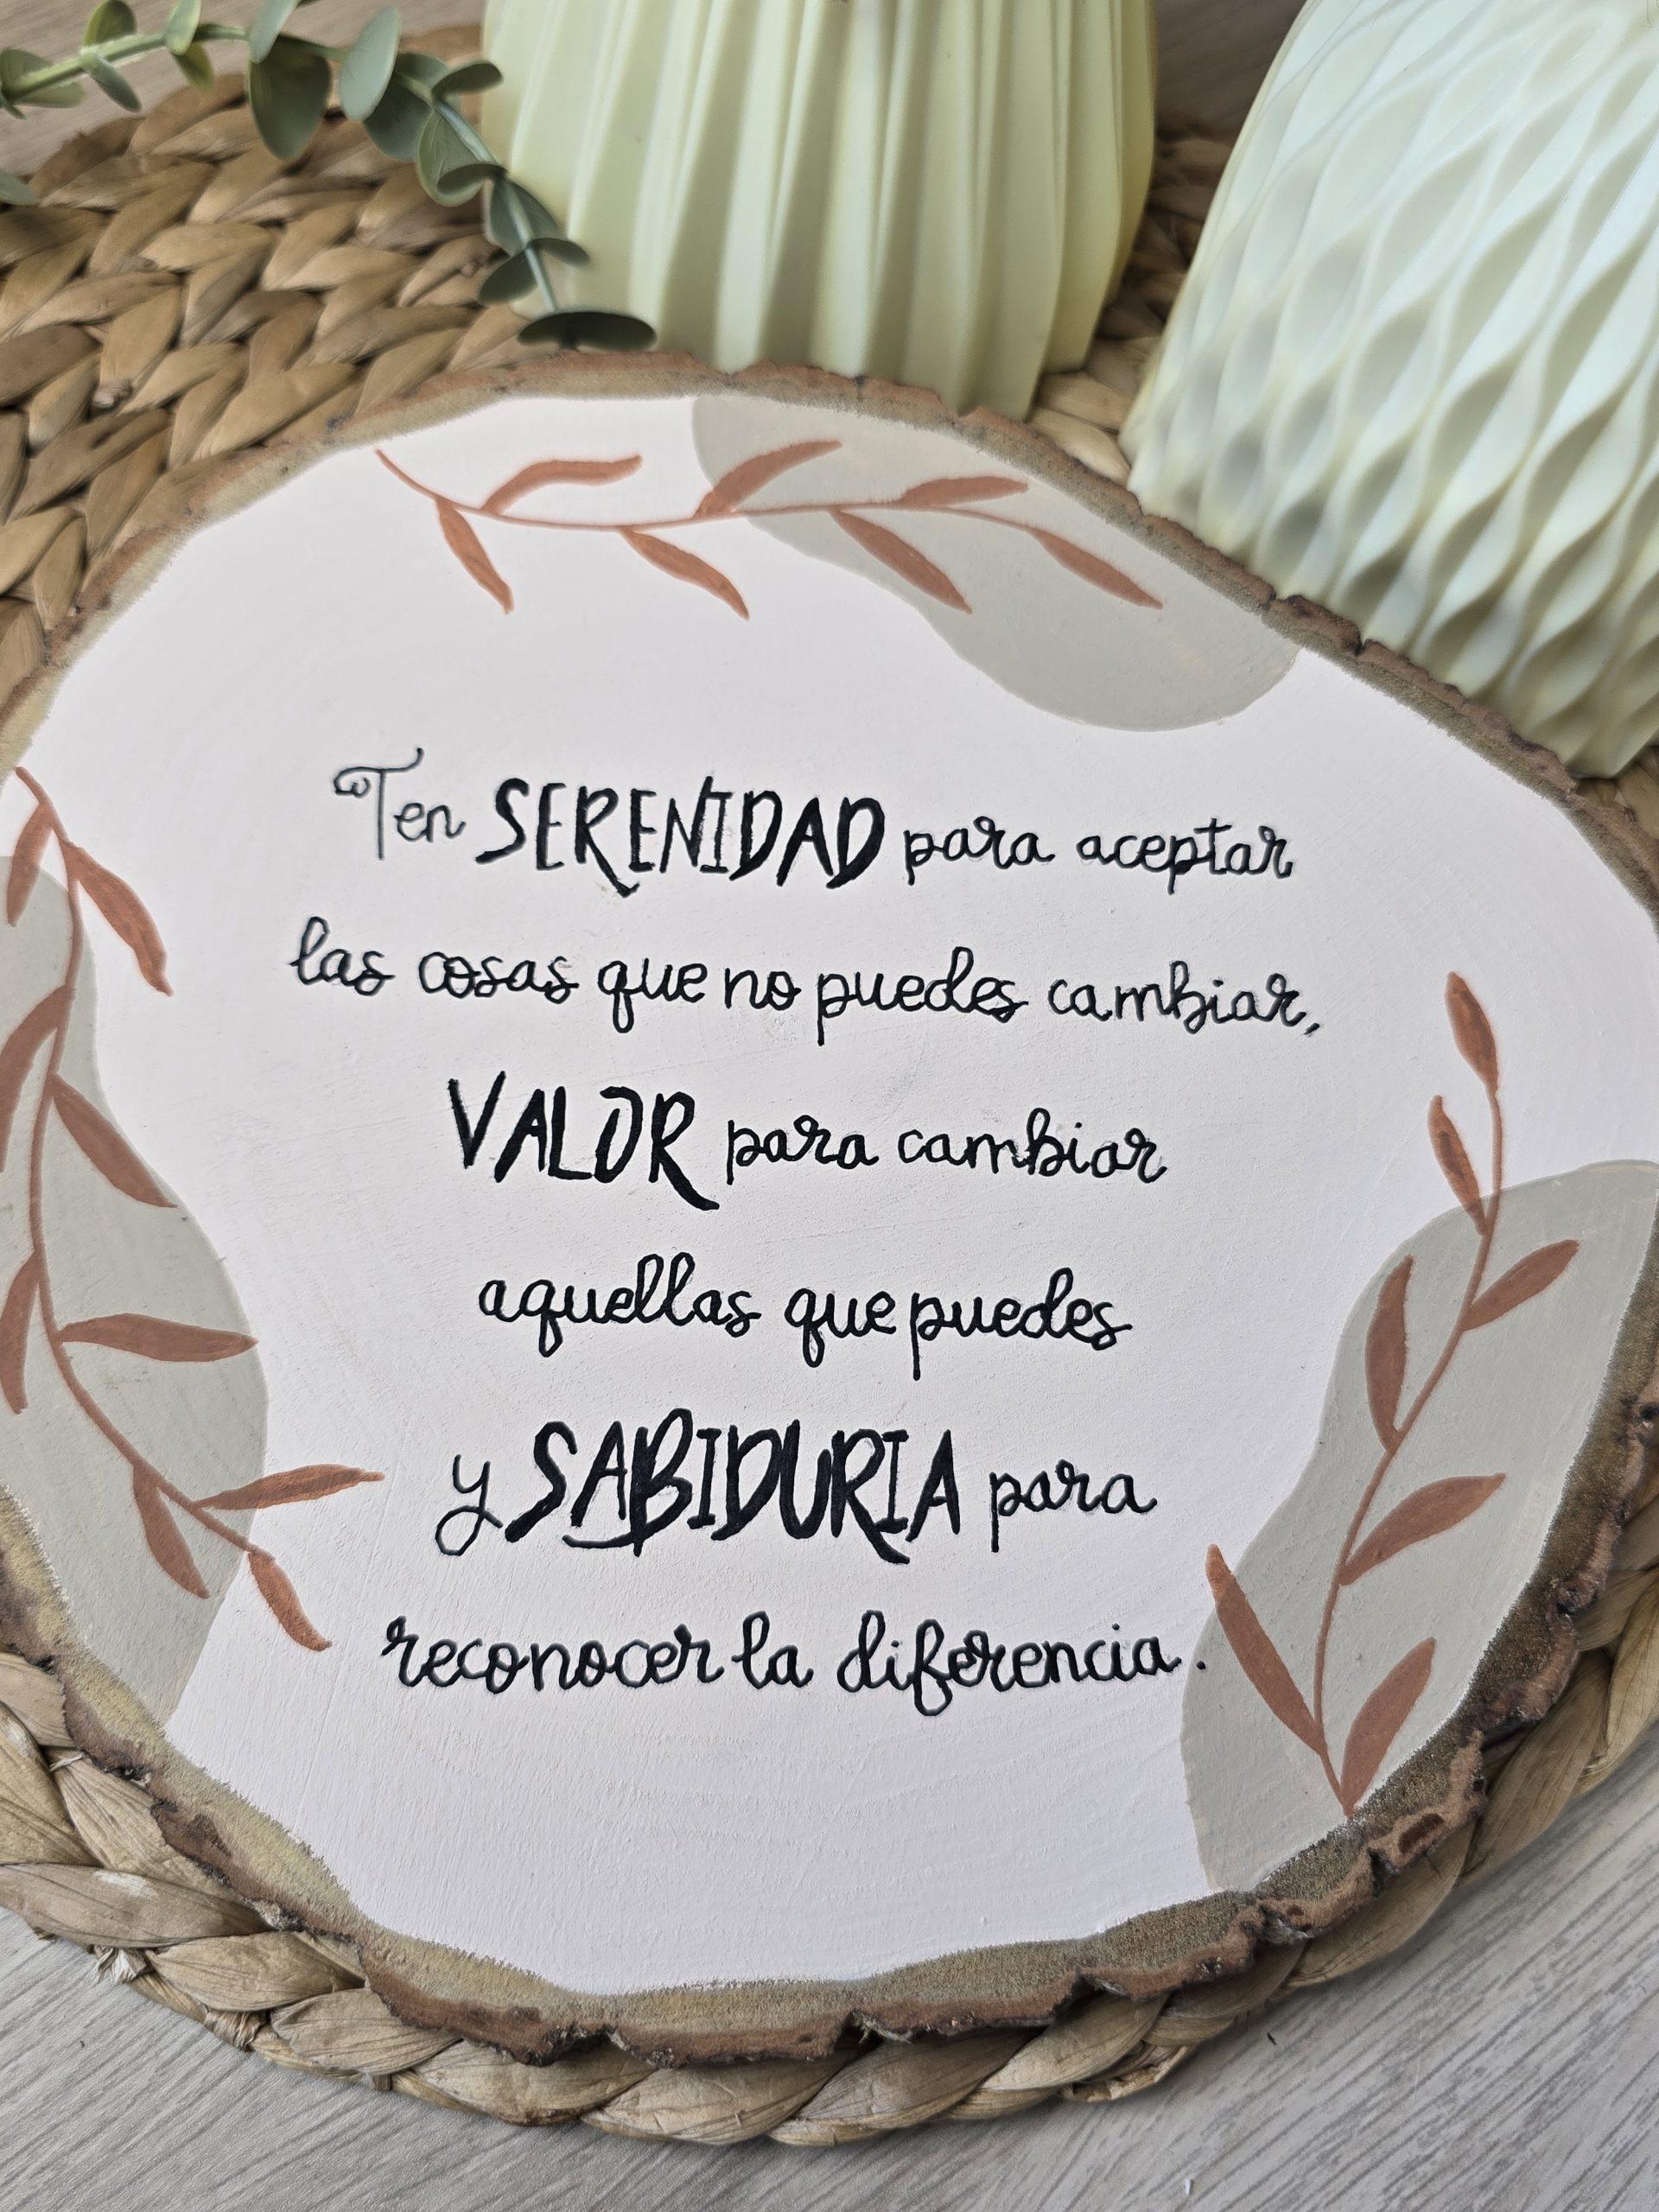 Ten SERENIDAD para aceptar
las cosas que no puedes cambiar,
VALOR para cambiar
aquellas que puedes
y SABIDURIA para
reconocer la diferencia.